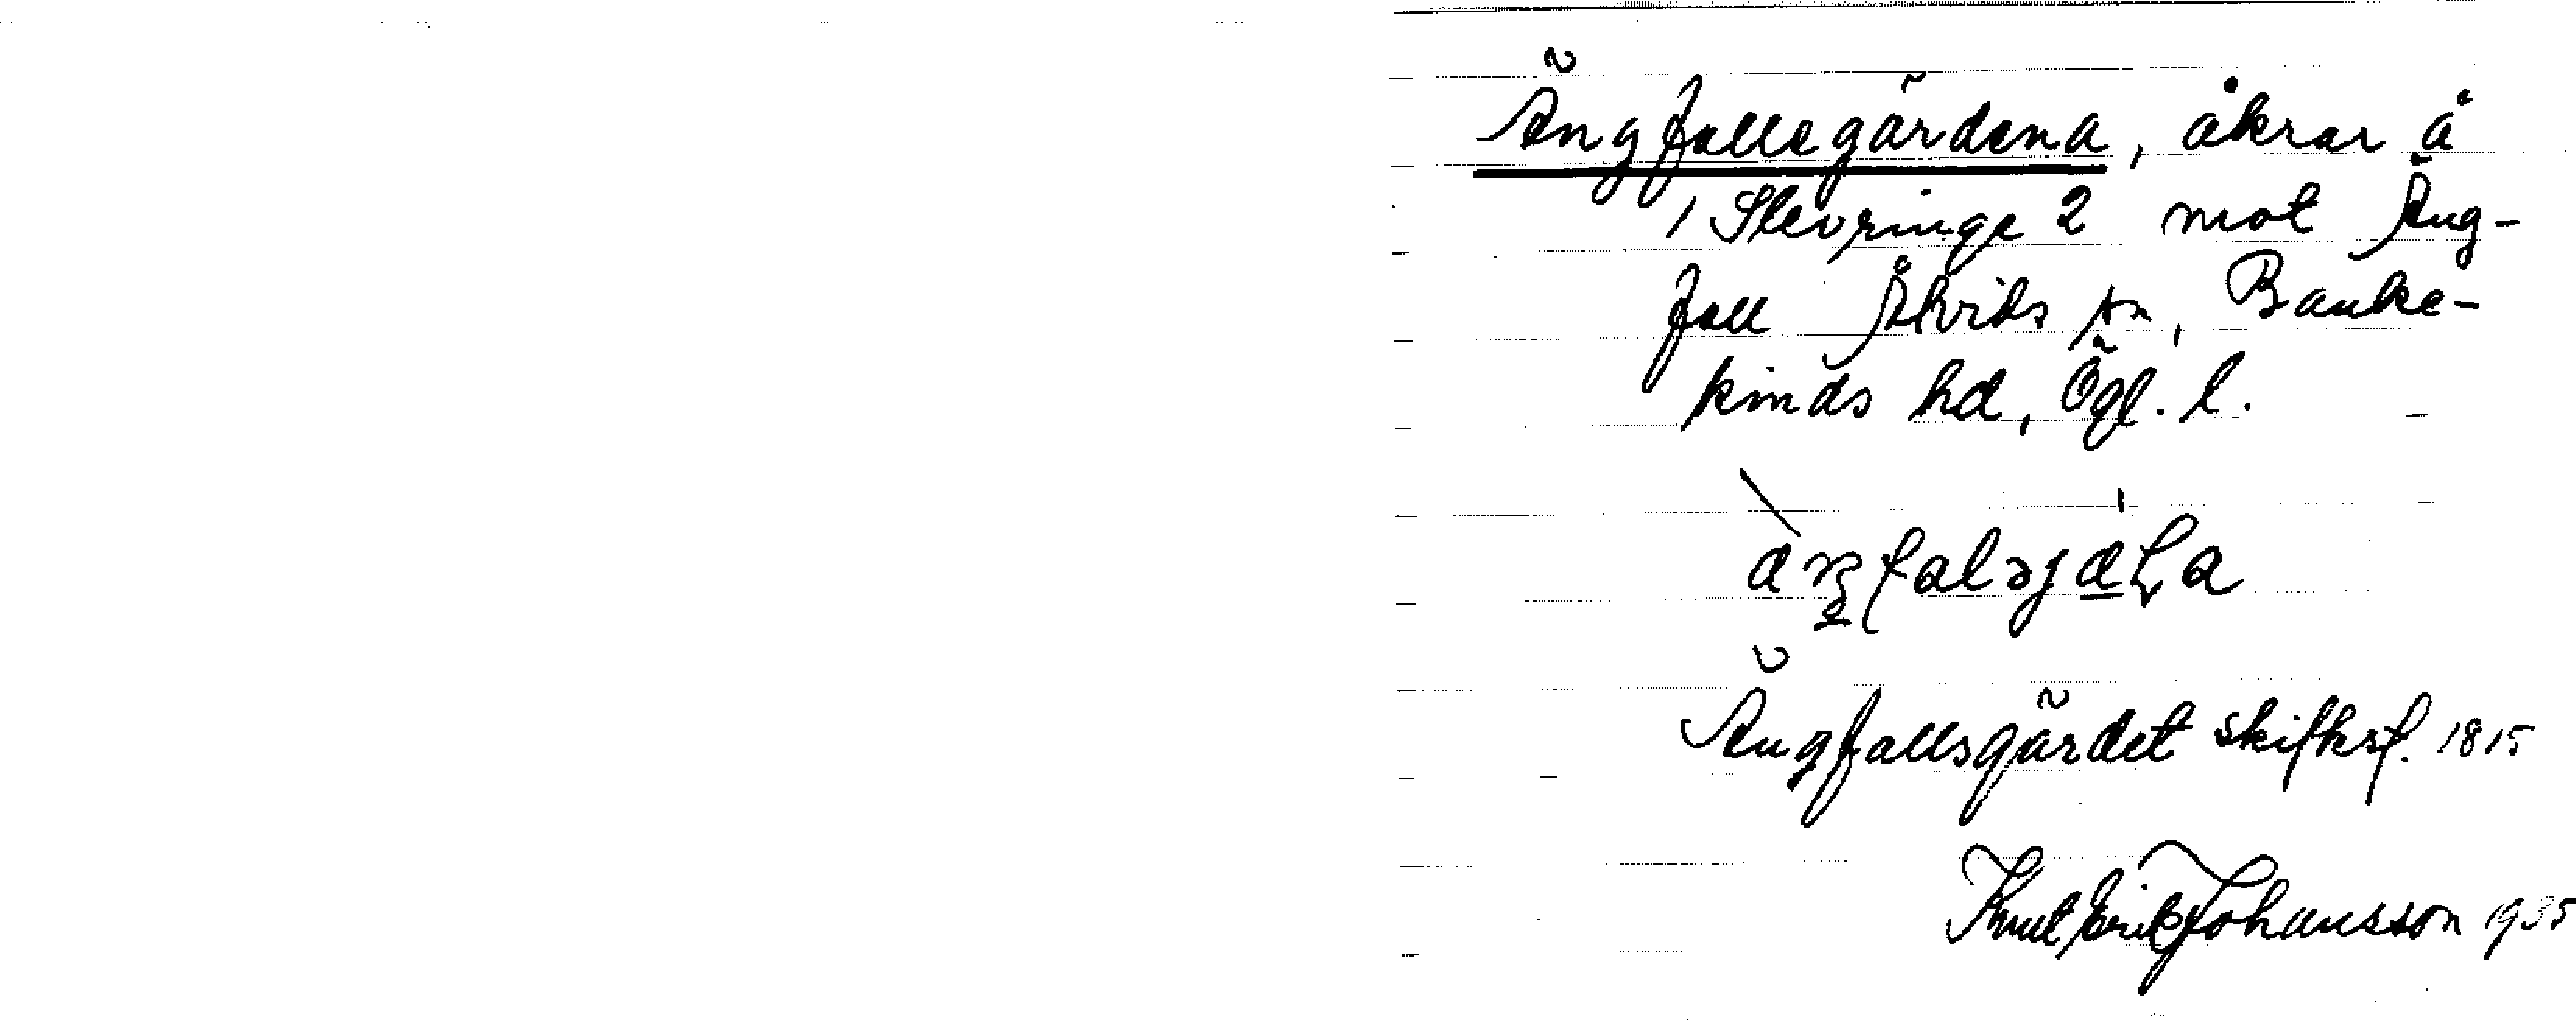 Ängfallsgärdena, åkrar å
/ Slevringe 2 mot Äng-
fall Åtvids sn, Banke-
kinds hd, Ögl. l.
Ängfallsgärdet skifksf. 1815
Knut Erik Johansson 1935